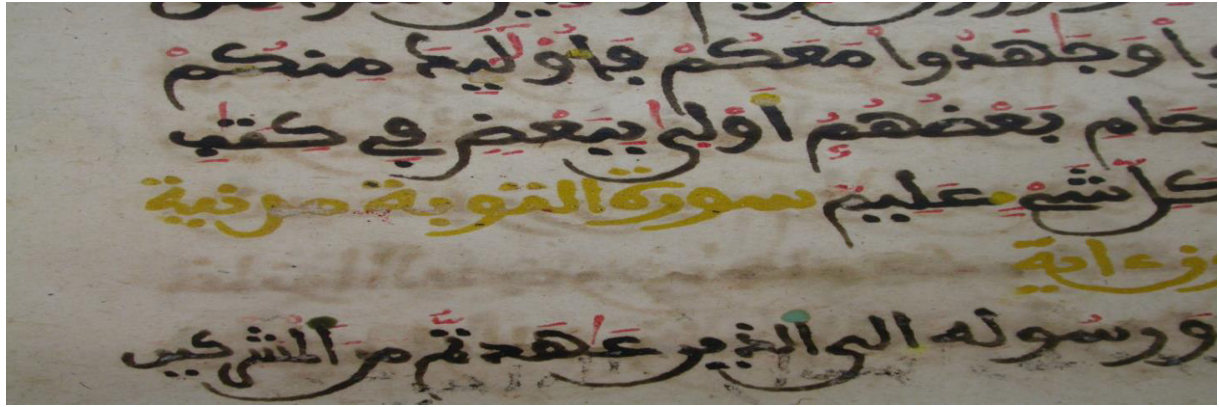 وا وَجَٰهَدُوا مَعَكُمْ فَأُوْلَٰئِكَ مِنكُمْ
حَامِ بَعْضُهُمُ أَوْلَىٰ بِبَعْضٍ فِي كِتَٰبِ
كُلِّ شَيْءٍ عَلِيمٌ سورة التوبة مدنية
ون ءاية
وَرَسُولِهِ إِلَى الَّذِينَ عَٰهَدتُّم مِّنَ الْمُشْرِكِينَ